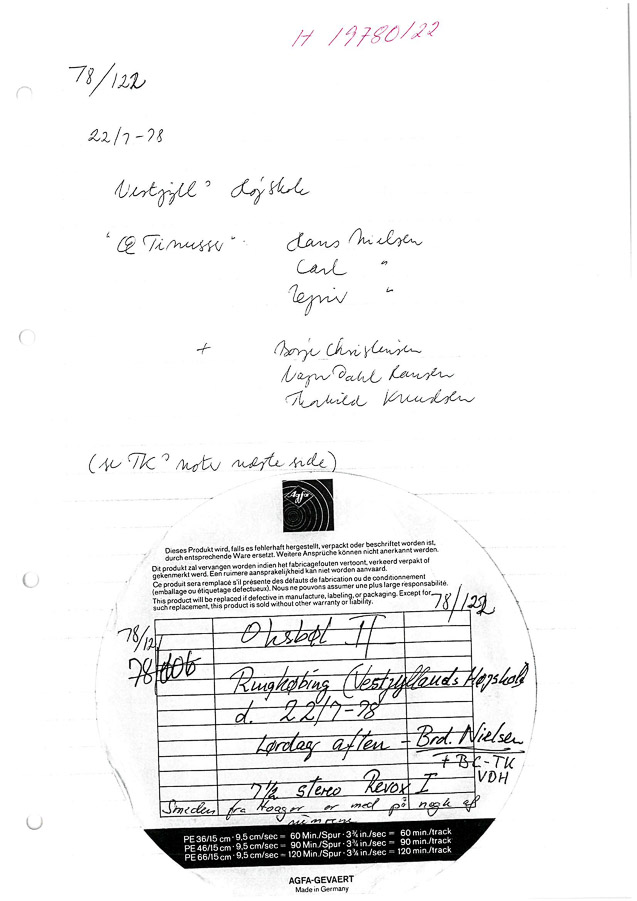 H 19780122
78/122
22/7-78
Vestjyll³ Højskole
"Æ Timusser": Hans Nielsen
Carl "
"
+ Børje Christensen
Vagn Dahl Hansen
Thorkild Knudsen
(se TK³ note næste side)
Agfa
Dieses Produkt wird, falls es fehlerhaft hergestellt, verpackt oder beschriftet worden ist,
durch entsprechende Ware ersetzt. Weitere Ansprüche können nicht anerkannt werden.
Dit produkt zal vervangen worden indien het fabricagefouten vertoont, verkeerd verpakt of
gekenmerkt werd. Een ruimere aansprakelijkheid kan niet worden aanvaard.
Ce produit sera remplacé s'il présente des défauts de fabrication ou de conditionnement
(emballage ou étiquetage défectueux). Nous ne pouvons assumer une plus large responsabilité.
This product will be replaced if defective in manufacture, labeling, or packaging. Except for
such replacement, this product is sold without other warranty or liability.
78/122
78/121
Oksbøl II
78/006
Ringkøbing (Vestjyllands Højskole
d. 22/7-78
Lørdag aften - Brd. Nielsen
+ BC-TK
VDH
7½ stereo Revox I
Smeden fra Hoager er med på nogle af
numrene
PE 36/15 cm · 9,5 cm/sec = 60 Min./Spur · 3¾ in./sec = 60 min./track
PE 46/15 cm · 9,5 cm/sec = 90 Min./Spur · 3¾ in./sec = 90 min./track
PE 66/15 cm · 9,5 cm/sec = 120 Min./Spur · 3¾ in./sec = 120 min./track
AGFA-GEVAERT
Made in Germany